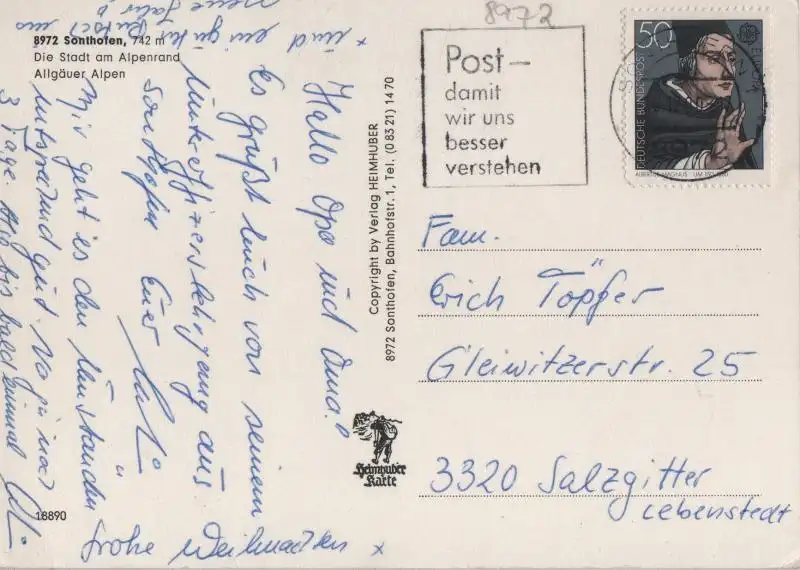 8972
8972 Sonthofen, 742 m
Die Stadt am Alpenrand
Allgäuer Alpen
Hallo Opa und Oma!
Es grüßt Euch von seinem
Unteroffizierslehrgang aus
Sonthofen Euer
Mir geht es den Umständen
entsprechend gut. Na ja noch
3 Tage. Also bis bald einmal
frohe Weihnachten x
x und ein guten Rutsch ins
neue Jahr
18890
Copyright by Verlag HEIMHUBER
8972 Sonthofen, Bahnhofstr. 1, Tel. (0 83 21) 14 70
Heimhuber
Karte
Post –
damit
wir uns
besser
verstehen
50
EUROPA
DEUTSCHE BUNDESPOST
ALBERTUS MAGNUS
Fam.
Erich Töpfer
Gleiwitzerstr. 25
3320 Salzgitter
Lebenstedt